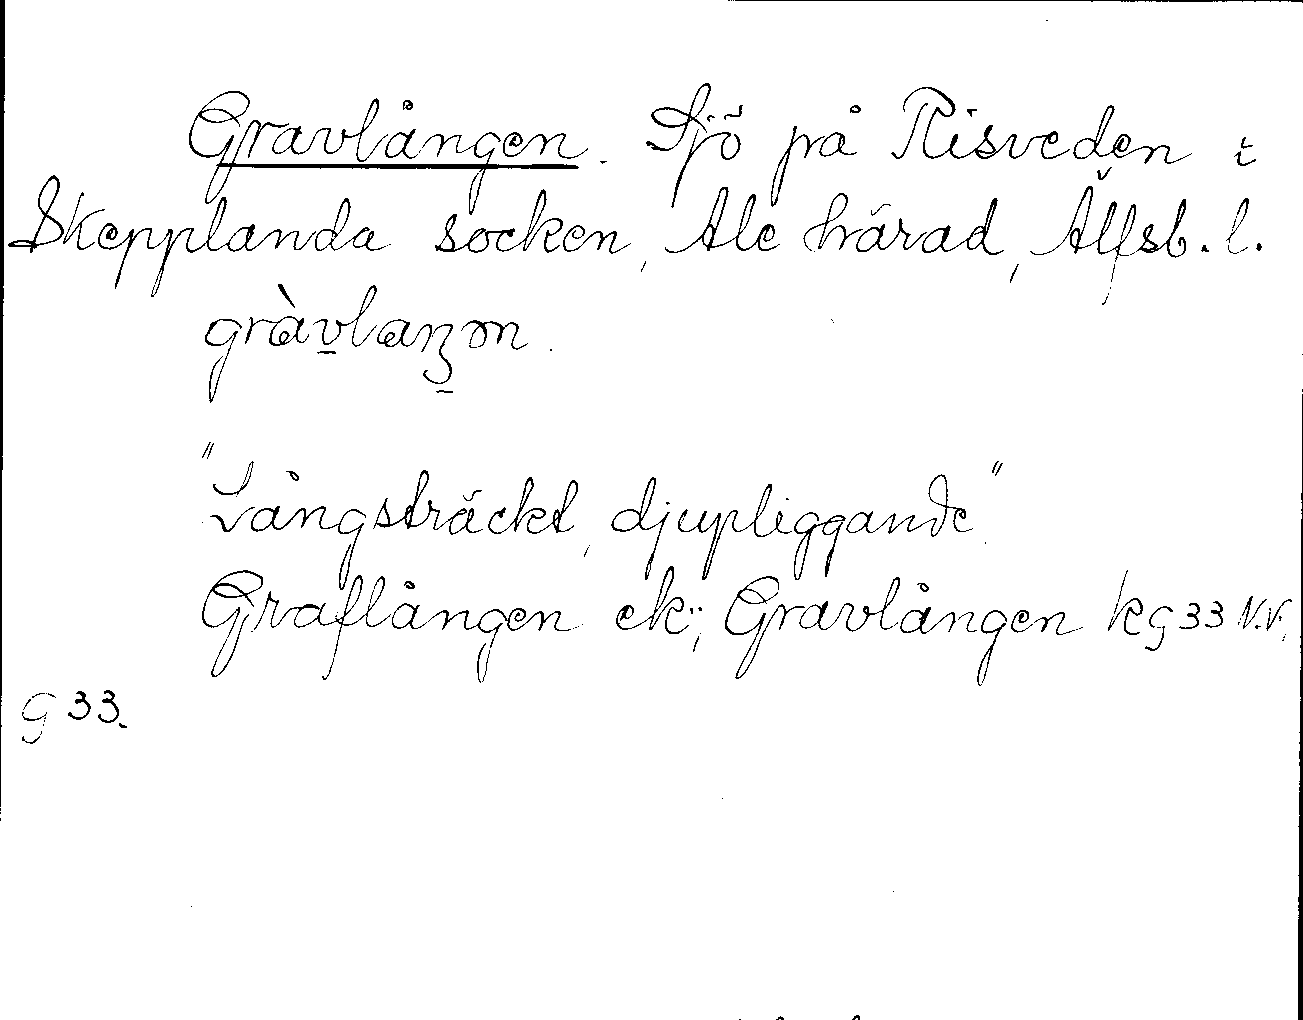 Gravlången. Sjö på Risveden i
Skepplanda socken, Ale härad, Älfsb. l.
gràvlaŋən.
"Långsträckt, djupliggande".
Graflången ek; Gravlången kG33 N.V.,
G 33.